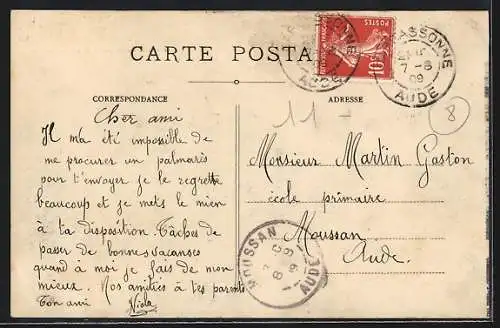 CARTE POSTA
POSTES
10c
CARCASSONNE
7-8
09
AUDE
AUDE
CORRESPONDANCE
ADRESSE
11-
8
Cher ami
Il m'a été impossible de
me procurer un palmarès
pour t'envoyer je le regrette
beaucoup et je mets le mien
à ta disposition Tâches de
passer de bonnes vacances
quand à moi je fais de mon
mieux. Nos amitiés à tes parents
Ton ami
Monsieur Martin Gaston
école primaire
Moussan
Aude.
MOUSSAN
AUDE